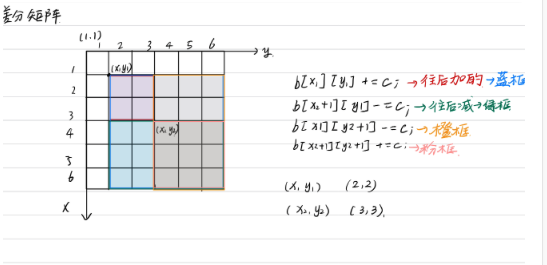 差分矩阵
(1.1)
1 2 3 4 5 6
y
(x₁y₁)
1
2
3
4
(x₂y₂)
5
6
x
b[x₁][y₁] += c; →往后加的→蓝框
b[x₂+1][y1] -= c; →往后减→绿框
b[x1][y2+1] -= c; →橙框
b[x2+1][y2+1] += c; →粉框
(x, y₁) (2,2)
(x₂, y₂) (3,3).